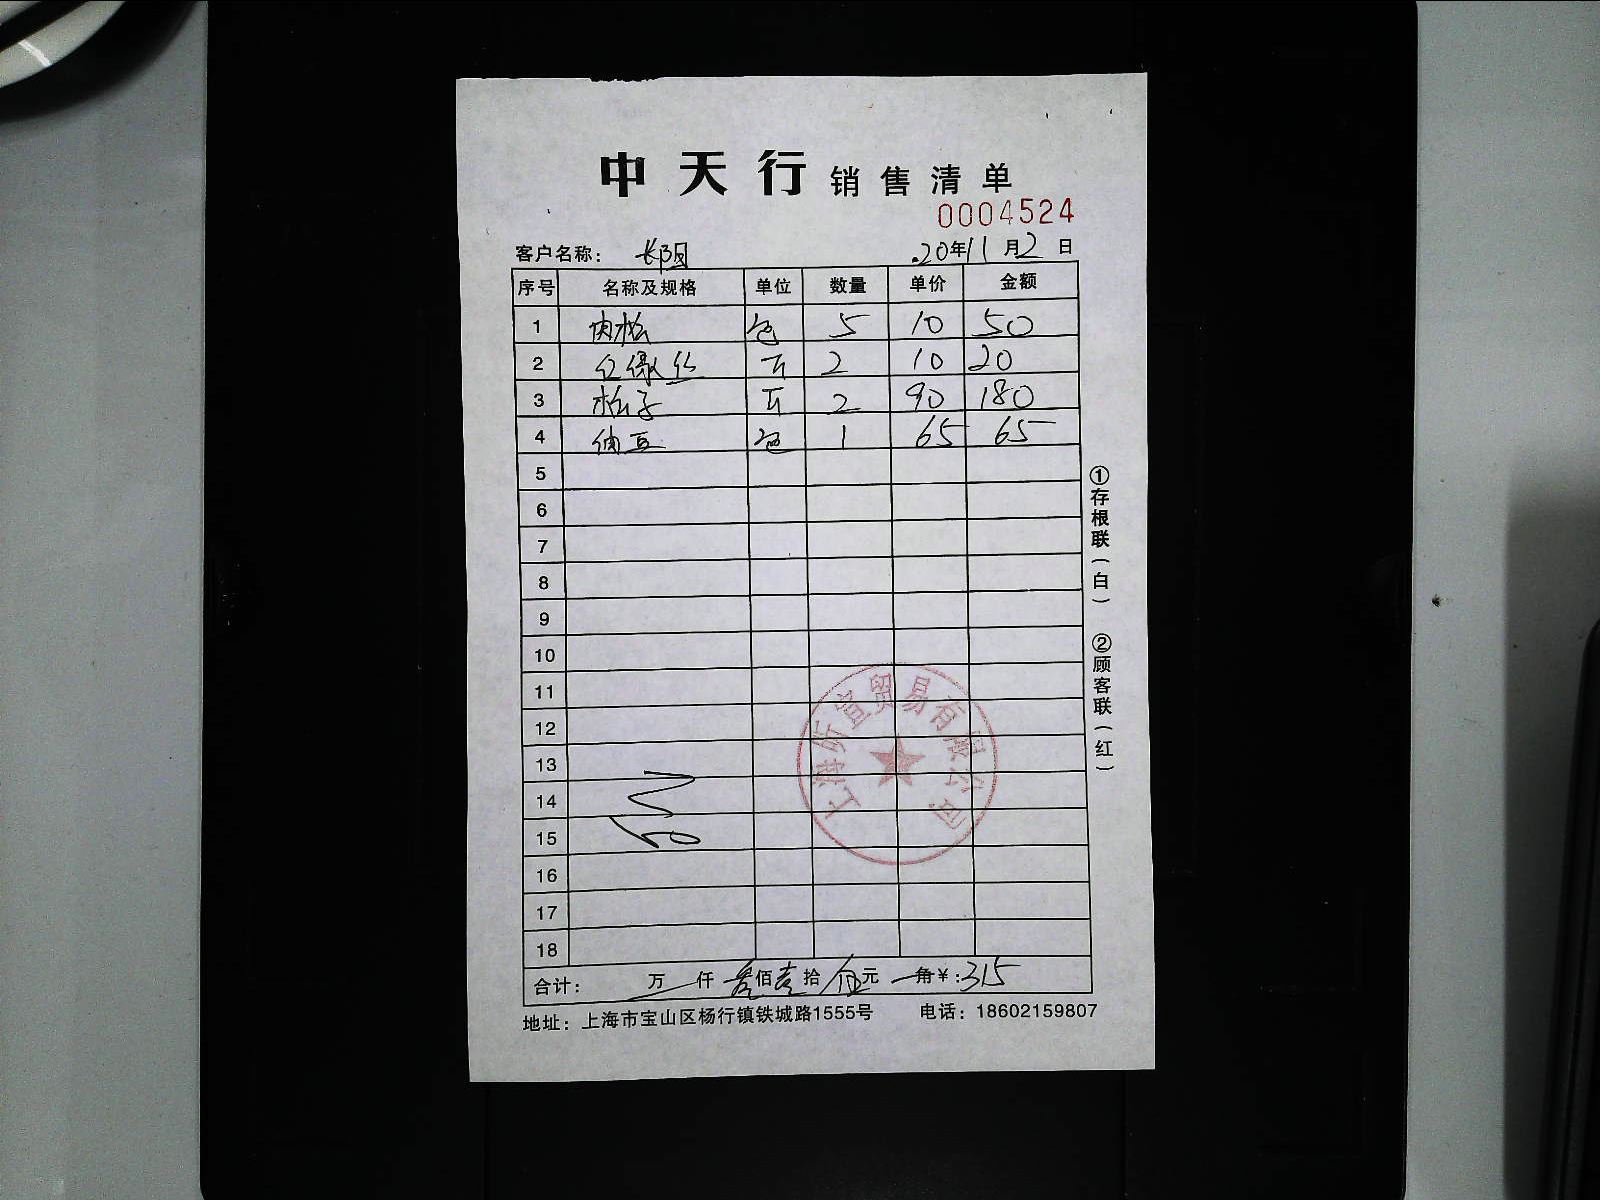 中天行 销售清单
0004524
客户名称： 长阳 20年11月2日
序号 名称及规格 单位 数量 单价 金额
1 肉松 包 5 10 50
2 红绿丝 斤 2 10 20
3 松子 斤 2 90 180
4 纳豆 包 1 65 65
5
6
7
8
9
10
11
12
13
14
15
16
17
18
合计： 万 仟 叁佰壹拾伍元 角 ¥:315
地址：上海市宝山区杨行镇铁城路1555号 电话：18602159807
①存根联（白） ②顾客联（红）
上海昕宣贸易有限公司